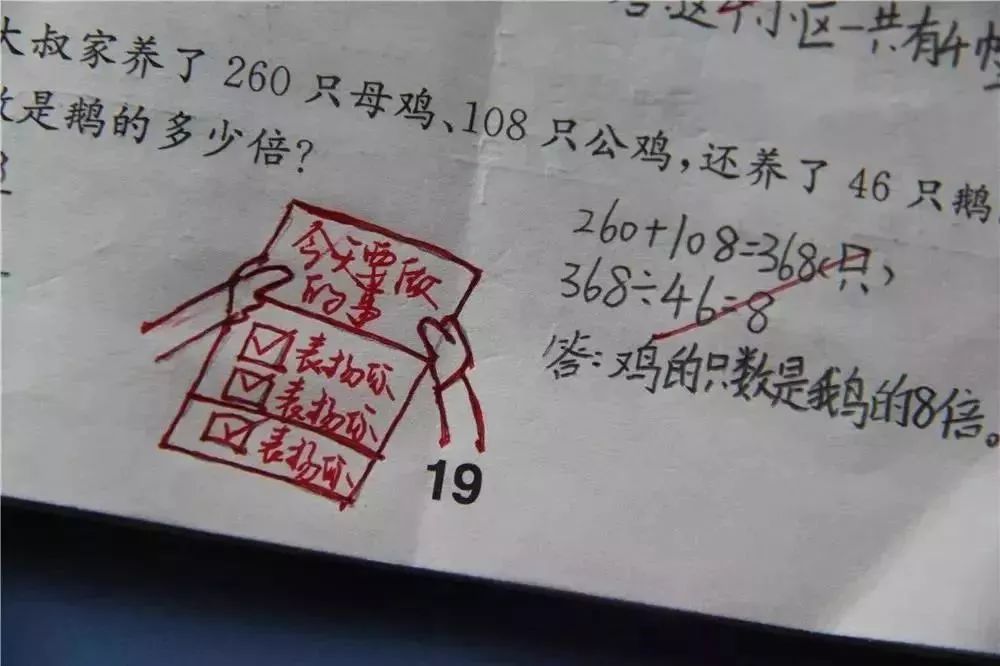 答:这个小区一共有4幢
大叔家养了 260 只母鸡、108 只公鸡,还养了 46 只鹅
数是鹅的多少倍?
260+108=368(只)
368÷46=8
答:鸡的只数是鹅的8倍。
今天要做
的事
表扬你
表扬你
表扬你
19